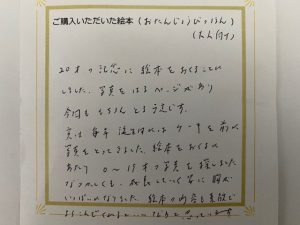 ご購入いただいた絵本（おたんじょうびのほん）
（大人向け）
20才の記念に絵本をおくることに
しました。写真をはるページがあり
今回もそうとる予定です。
実は毎年誕生日にはケーキを前に
写真をとってきました。絵本をおくるに
あたり0〜19才の写真を探しました
なつかしくも、成長していく姿に胸が
いっぱいになりました。絵本の内容も素敵で